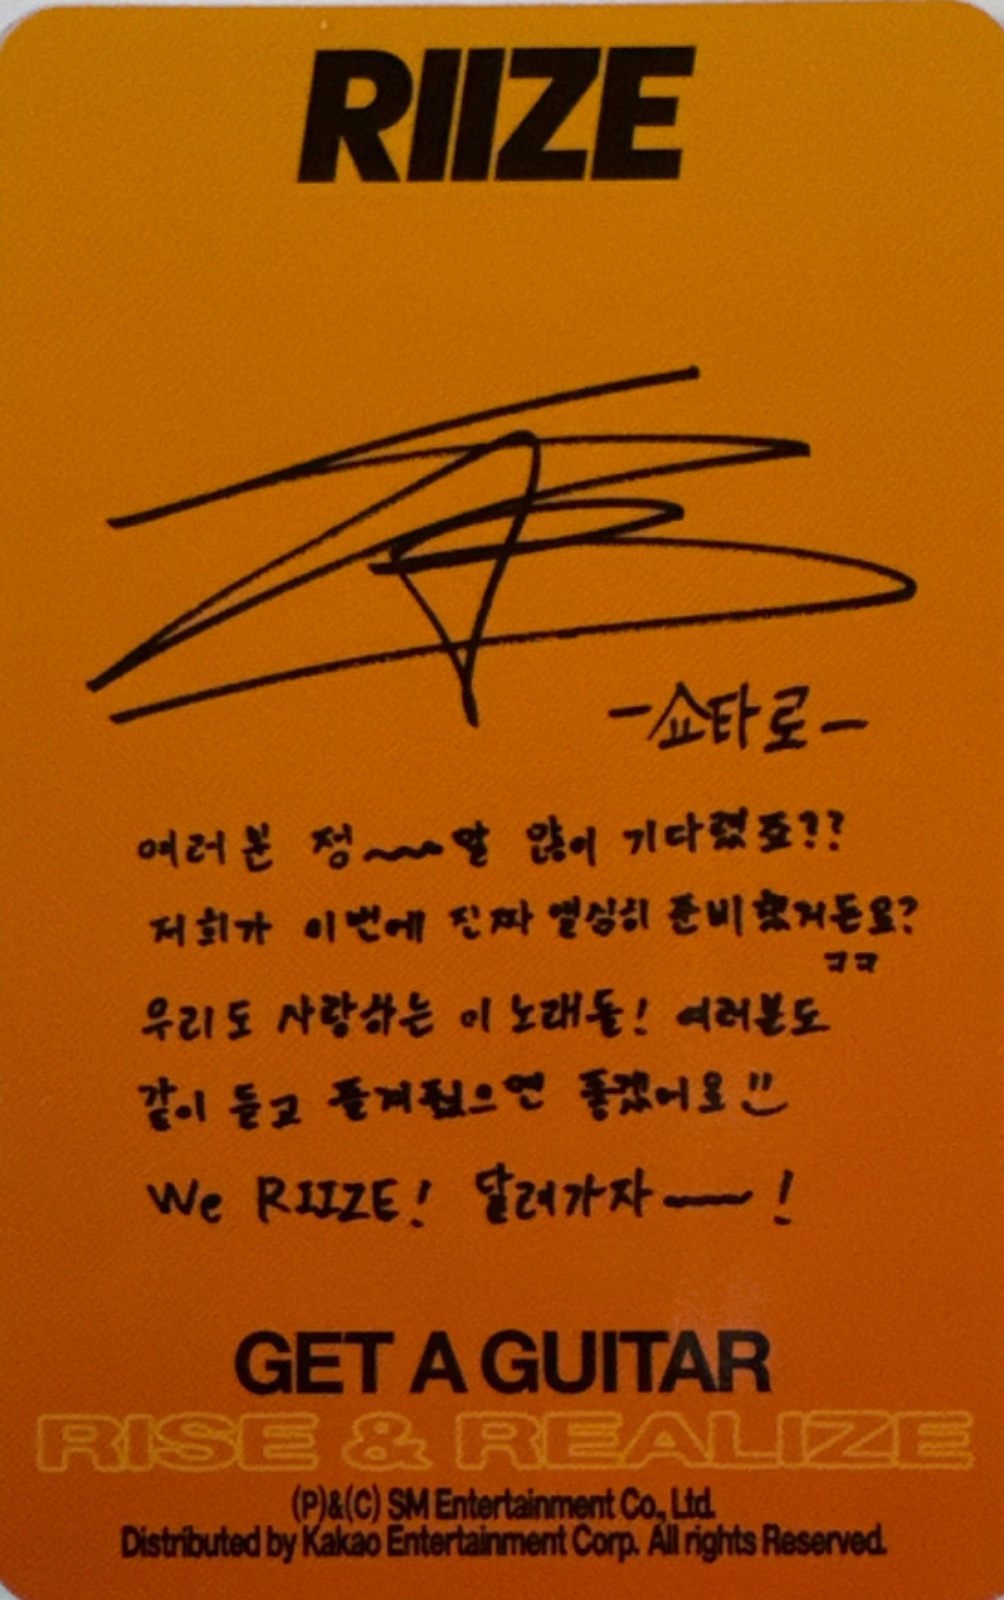 RIIZE
-쇼타로-
여러분 정~~말 많이 기다렸죠??
저희가 이번에 진짜 열심히 준비했거든요?
ㅋㅋ
우리도 사랑하는 이 노래들! 여러분도
같이 듣고 즐겨줬으면 좋겠어요!!
We RIIZE! 달려가자ㅡ!
GET A GUITAR
RISE & REALIZE
(P)&(C) SM Entertainment Co., Ltd.
Distributed by Kakao Entertainment Corp. All rights Reserved.